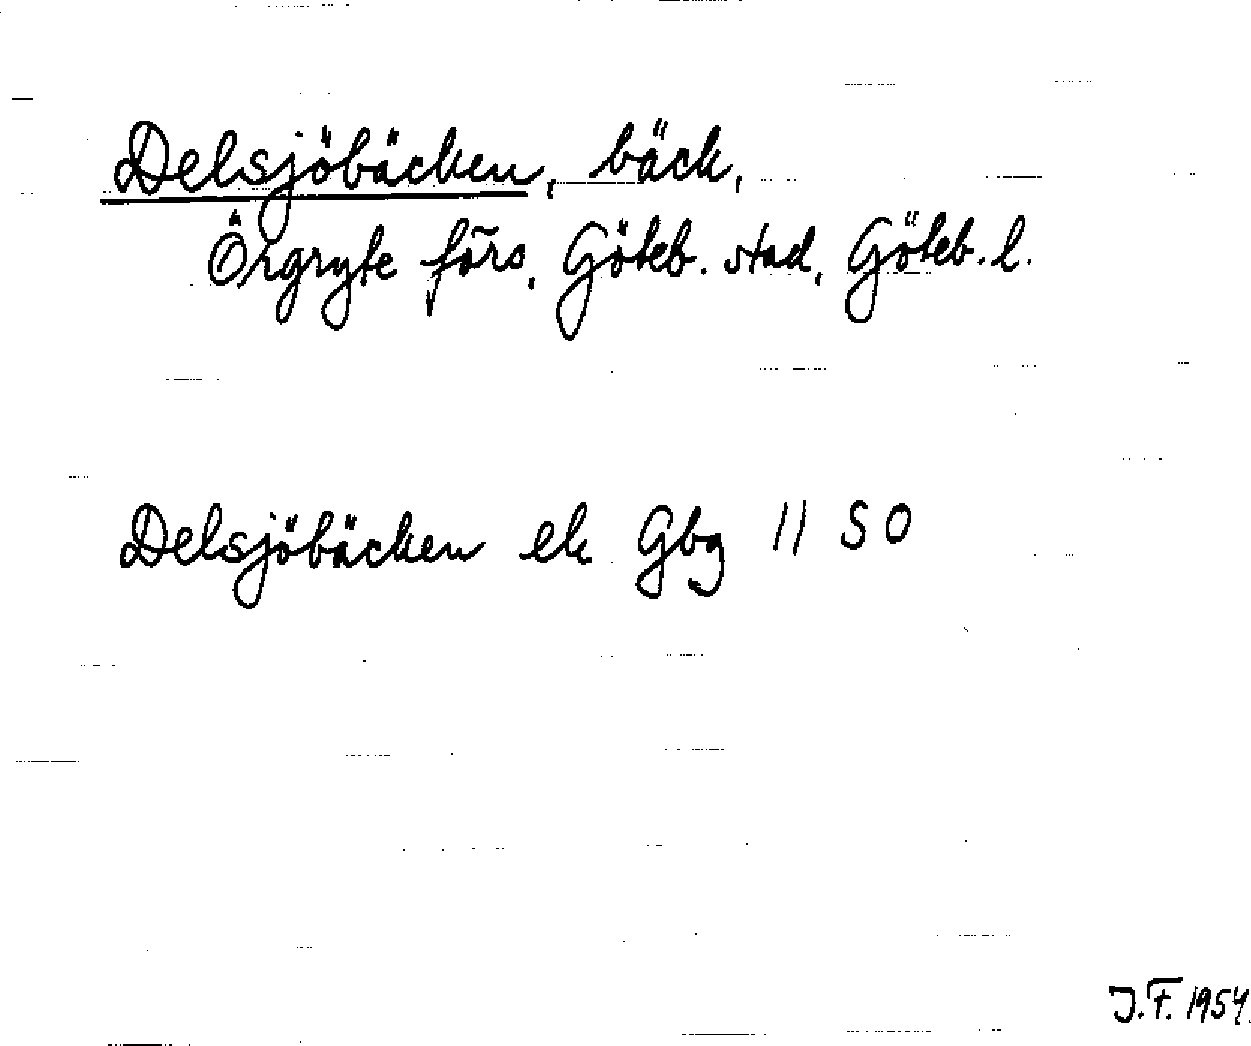 Delsjöbäcken, bäck,
Örgryte förs, Göteb. stad, Göteb. l.
Delsjöbäcken ek Gbg 11 SO
J.F. 1954.